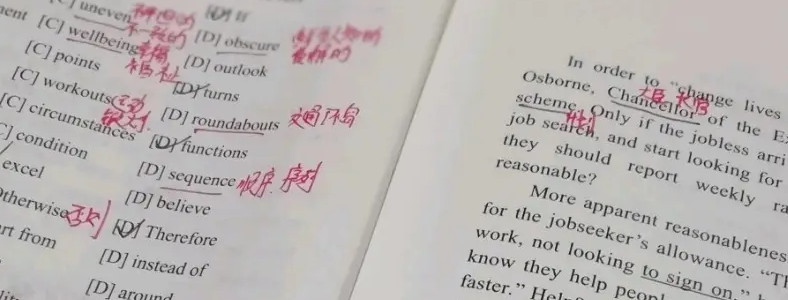 [C] uneven
[C] wellbeing 幸福 福祉 [D] obscure
[C] points [D] outlook
[D] turns
[C] workouts
[D] roundabouts 交通环岛
[C] circumstances [D] functions
condition
[D] sequence 顺序. 序列
excel
[D] believe
Otherwise 否则 [D] Therefore
[D] instead of
[D] around
In order to "change lives
Osborne, Chancellor of the Ex
大臣
scheme. Only if the jobless arri
计划
job search, and start looking for
they should report weekly ra
reasonable?
More apparent reasonableness
for the jobseeker's allowance. "Th
work, not looking to sign on."
know they help people
faster."